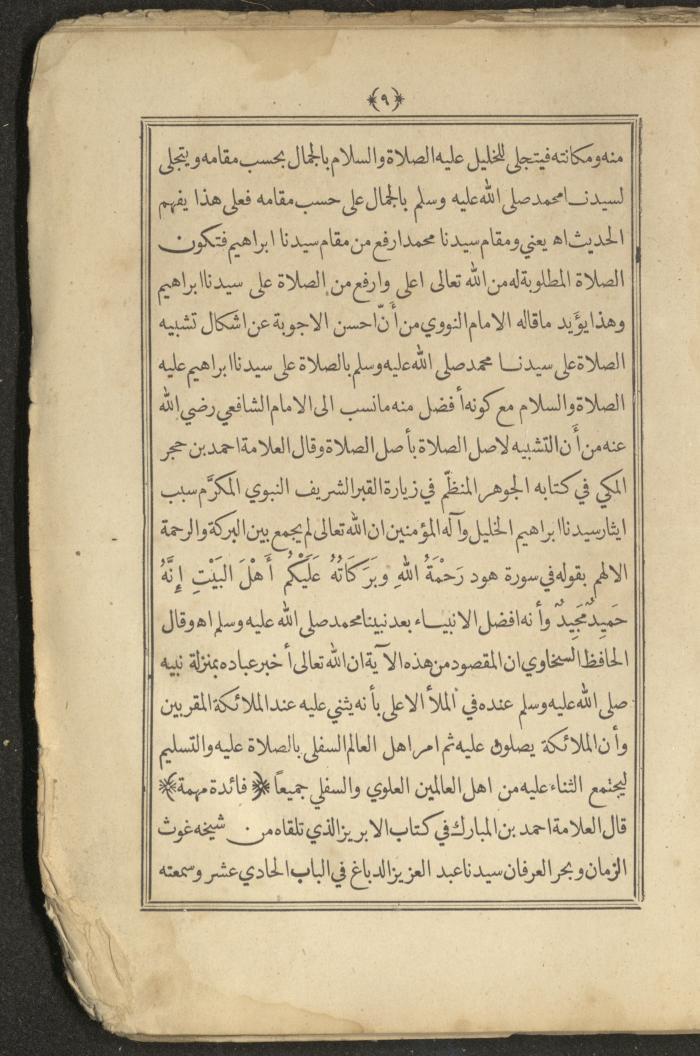 ﴿٩﴾
منه ومكانته فيتجلى للخليل عليه الصلاة والسلام بالجمال بحسب مقامه ويتجلى
لسيدنا محمد صلى الله عليه وسلم بالجمال على حسب مقامه فعلى هذا يفهم
الحديث اه يعني ومقام سيدنا محمد ارفع من مقام سيدنا ابراهيم فتكون
الصلاة المطلوبة له من الله تعالى اعلى وارفع من الصلاة على سيدنا ابراهيم
وهذا يؤَيد ماقاله الامام النووي من أَنَّ احسن الاجوبة عن اشكال تشبيه
الصلاة على سيدنا محمد صلى الله عليه وسلم بالصلاة على سيدنا ابراهيم عليه
الصلاة والسلام مع كونه أفضل منه مانسب الى الامام الشافعي رضي الله
عنه من أَن التشبيه لاصل الصلاة بأصل الصلاة وقال العلامة احمد بن حجر
المكي في كتابه الجوهر المنظّم في زيارة القبر الشريف النبوي المكرَّم سبب
ايثار سيدنا ابراهيم الخليل وآله المؤمنين ان الله تعالى لم يجمع بين البركة والرحمة
الا لهم بقوله في سورة هود رَحْمَةُ اللهِ وَبَرَكَاتُهُ عَلَيْكُمْ أَهْلَ البَيْتِ إِنَّهُ
حَمِيدٌ مَجِيدٌ وأنه افضل الانبياء بعد نبينا محمد صلى الله عليه وسلم اه وقال
الحافظ السخاوي ان المقصود من هذه الآية ان الله تعالى أخبر عباده بمنزلة نبيه
صلى الله عليه وسلم عنده في الملأ الاعلى بأنه يثني عليه عند الملائكة المقربين
وأن الملائكة يصلون عليه ثم امر اهل العالم السفلي بالصلاة عليه والتسليم
ليجتمع الثناء عليه من اهل العالمين العلوي والسفلي جميعاً ﴿فائدة مهمة﴾
قال العلامة احمد بن المبارك في كتاب الابريز الذي تلقاه من شيخه غوث
الزمان وبحر العرفان سيدنا عبد العزيز الدباغ في الباب الحادي عشر وسمعته